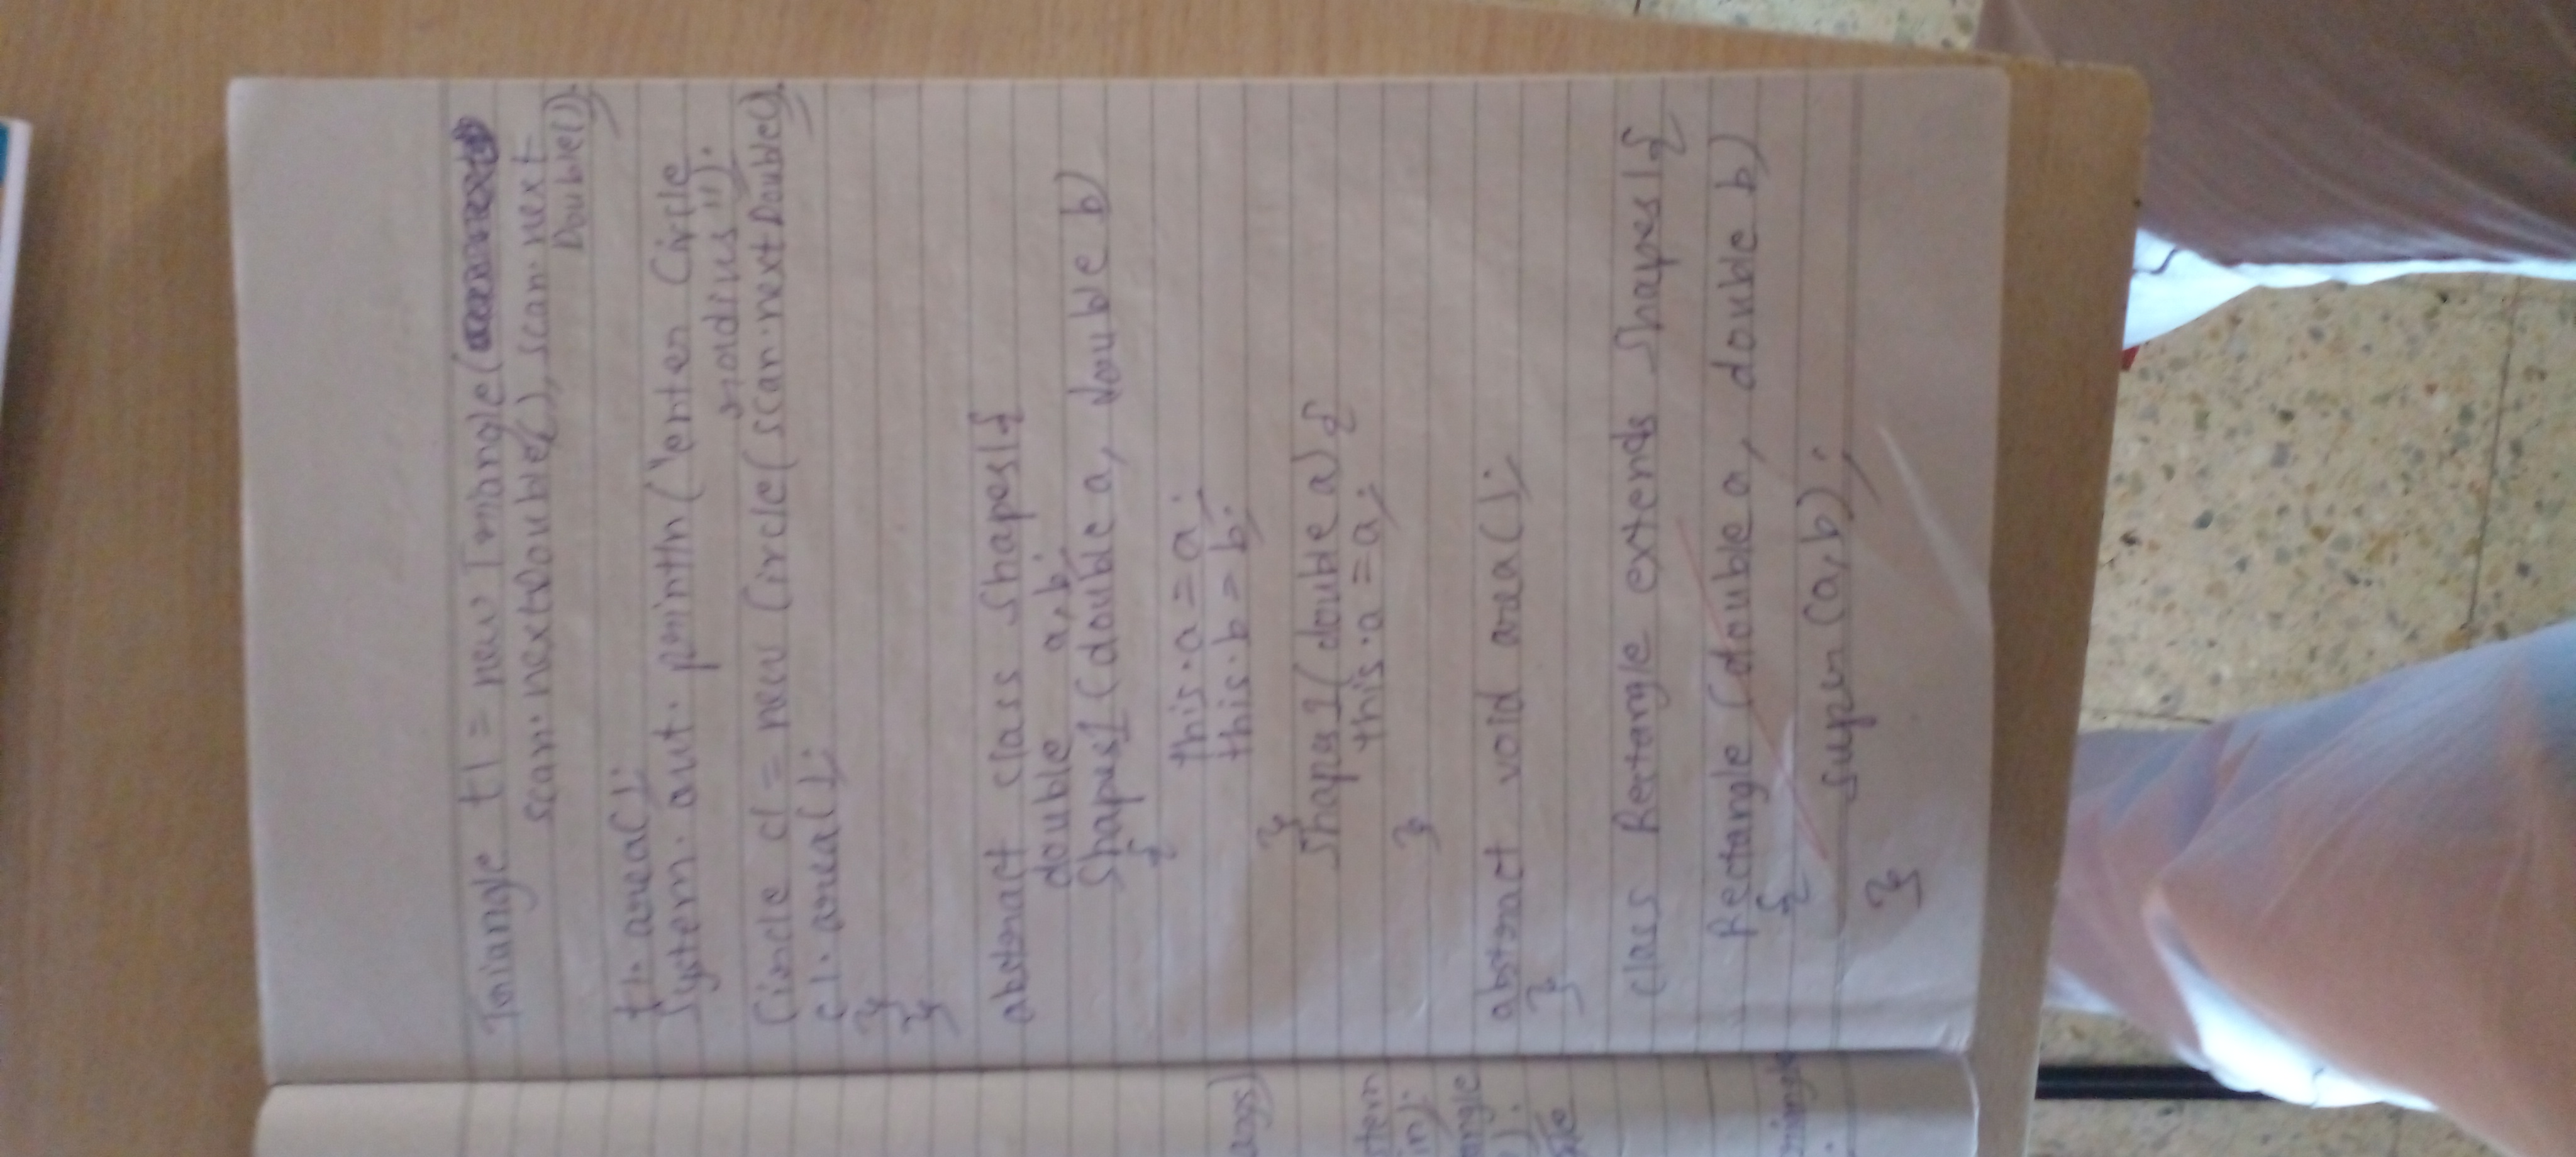 aogs)
stem
in);
angle
);
riangle
Triangle t1 = new Triangle(
scan.nextDouble(), scan.next
Double());
t1.area();
System.out.println("enter Circle
radius");
Circle c1 = new Circle(scan.nextDouble());
c1.area();
}
}
abstract class Shapes1{
double a,b;
Shapes1(double a, double b)
{
this.a = a;
this.b = b;
}
Shapes1(double a){
this.a = a;
}
abstract void area();
}
class Rectangle extends Shapes1{
Rectangle(double a, double b)
{
super(a,b);
}